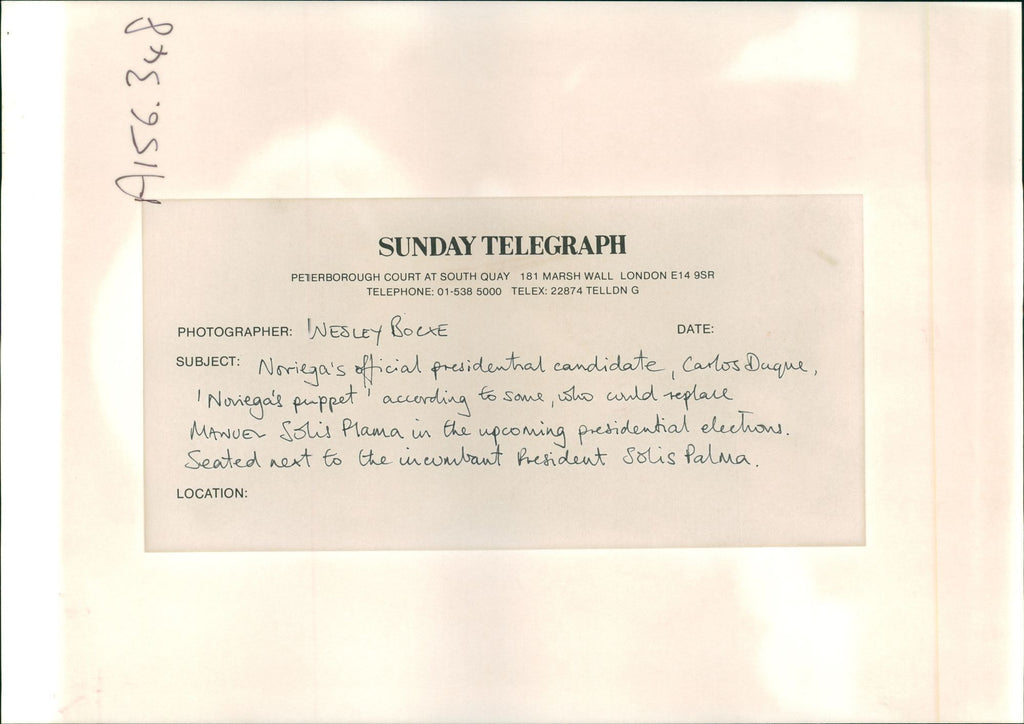 A156.348
SUNDAY TELEGRAPH
PETERBOROUGH COURT AT SOUTH QUAY 181 MARSH WALL LONDON E14 9SR
TELEPHONE: 01-538 5000 TELEX: 22874 TELLDN G
PHOTOGRAPHER: WESLEY BOCXE DATE:
SUBJECT: Noriega's official presidential candidate, Carlos Duque,
'Noriega's puppet' according to some, who could replace
MANUEL Solis Plama in the upcoming presidential elections.
Seated next to the incumbant President Solis Palma.
LOCATION: